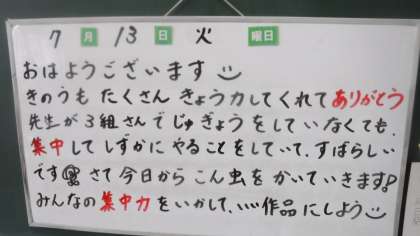 7月13日火曜日
おはようございます
きのうも たくさん きょう力してくれて ありがとう
先生が3組さんでじゅぎょうをしていなくても、
集中してしずかに やることをしていて、すばらしい
です さて 今日から こん虫を かいていきます。
みんなの集中力をいかして、いい作品にしよう